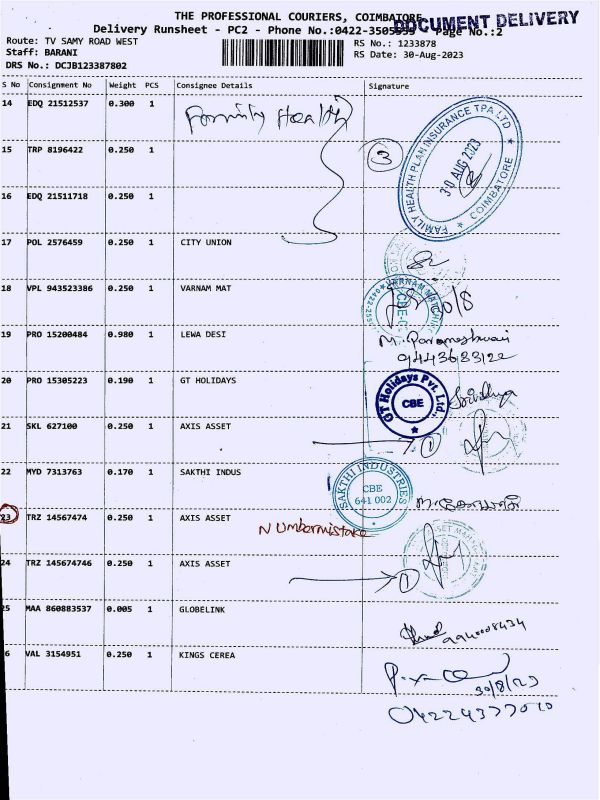 THE PROFESSIONAL COURIERS, COIMBATORE
DOCUMENT DELIVERY
Delivery Runsheet - PC2 - Phone No.:0422-3505555 Page No.:2
Route: TV SAMY ROAD WEST
RS No.: 1233878
Staff: BARANI
RS Date: 30-Aug-2023
DRS No.: DCJB123387802
S No Consignment No Weight PCS Consignee Details Signature
14 EDQ 21512537 0.300 1 Family Health
15 TRP 8196422 0.250 1
3
FAMILY HEALTH PLAN INSURANCE TPA LTD
30 AUG 2023
COIMBATORE
16 EDQ 21511718 0.250 1
17 POL 2576459 0.250 1 CITY UNION
18 VPL 943523386 0.250 1 VARNAM MAT
VARNAM MATCHING
30/8
19 PRO 15200484 0.980 1 LEWA DESI
M. Parameshwari
9443683122
20 PRO 15305223 0.190 1 GT HOLIDAYS
GT Holidays Pvt. Ltd.,
CBE
21 SKL 627100 0.250 1 AXIS ASSET
1
22 MYD 7313763 0.170 1 SAKTHI INDUS
SAKTHI INDUSTRIES
CBE
641 002
23 TRZ 14567474 0.250 1 AXIS ASSET
Number mistake
24 TRZ 145674746 0.250 1 AXIS ASSET
1
25 MAA 860883537 0.005 1 GLOBELINK
9940008434
6 VAL 3154951 0.250 1 KINGS CEREA
30/8/23